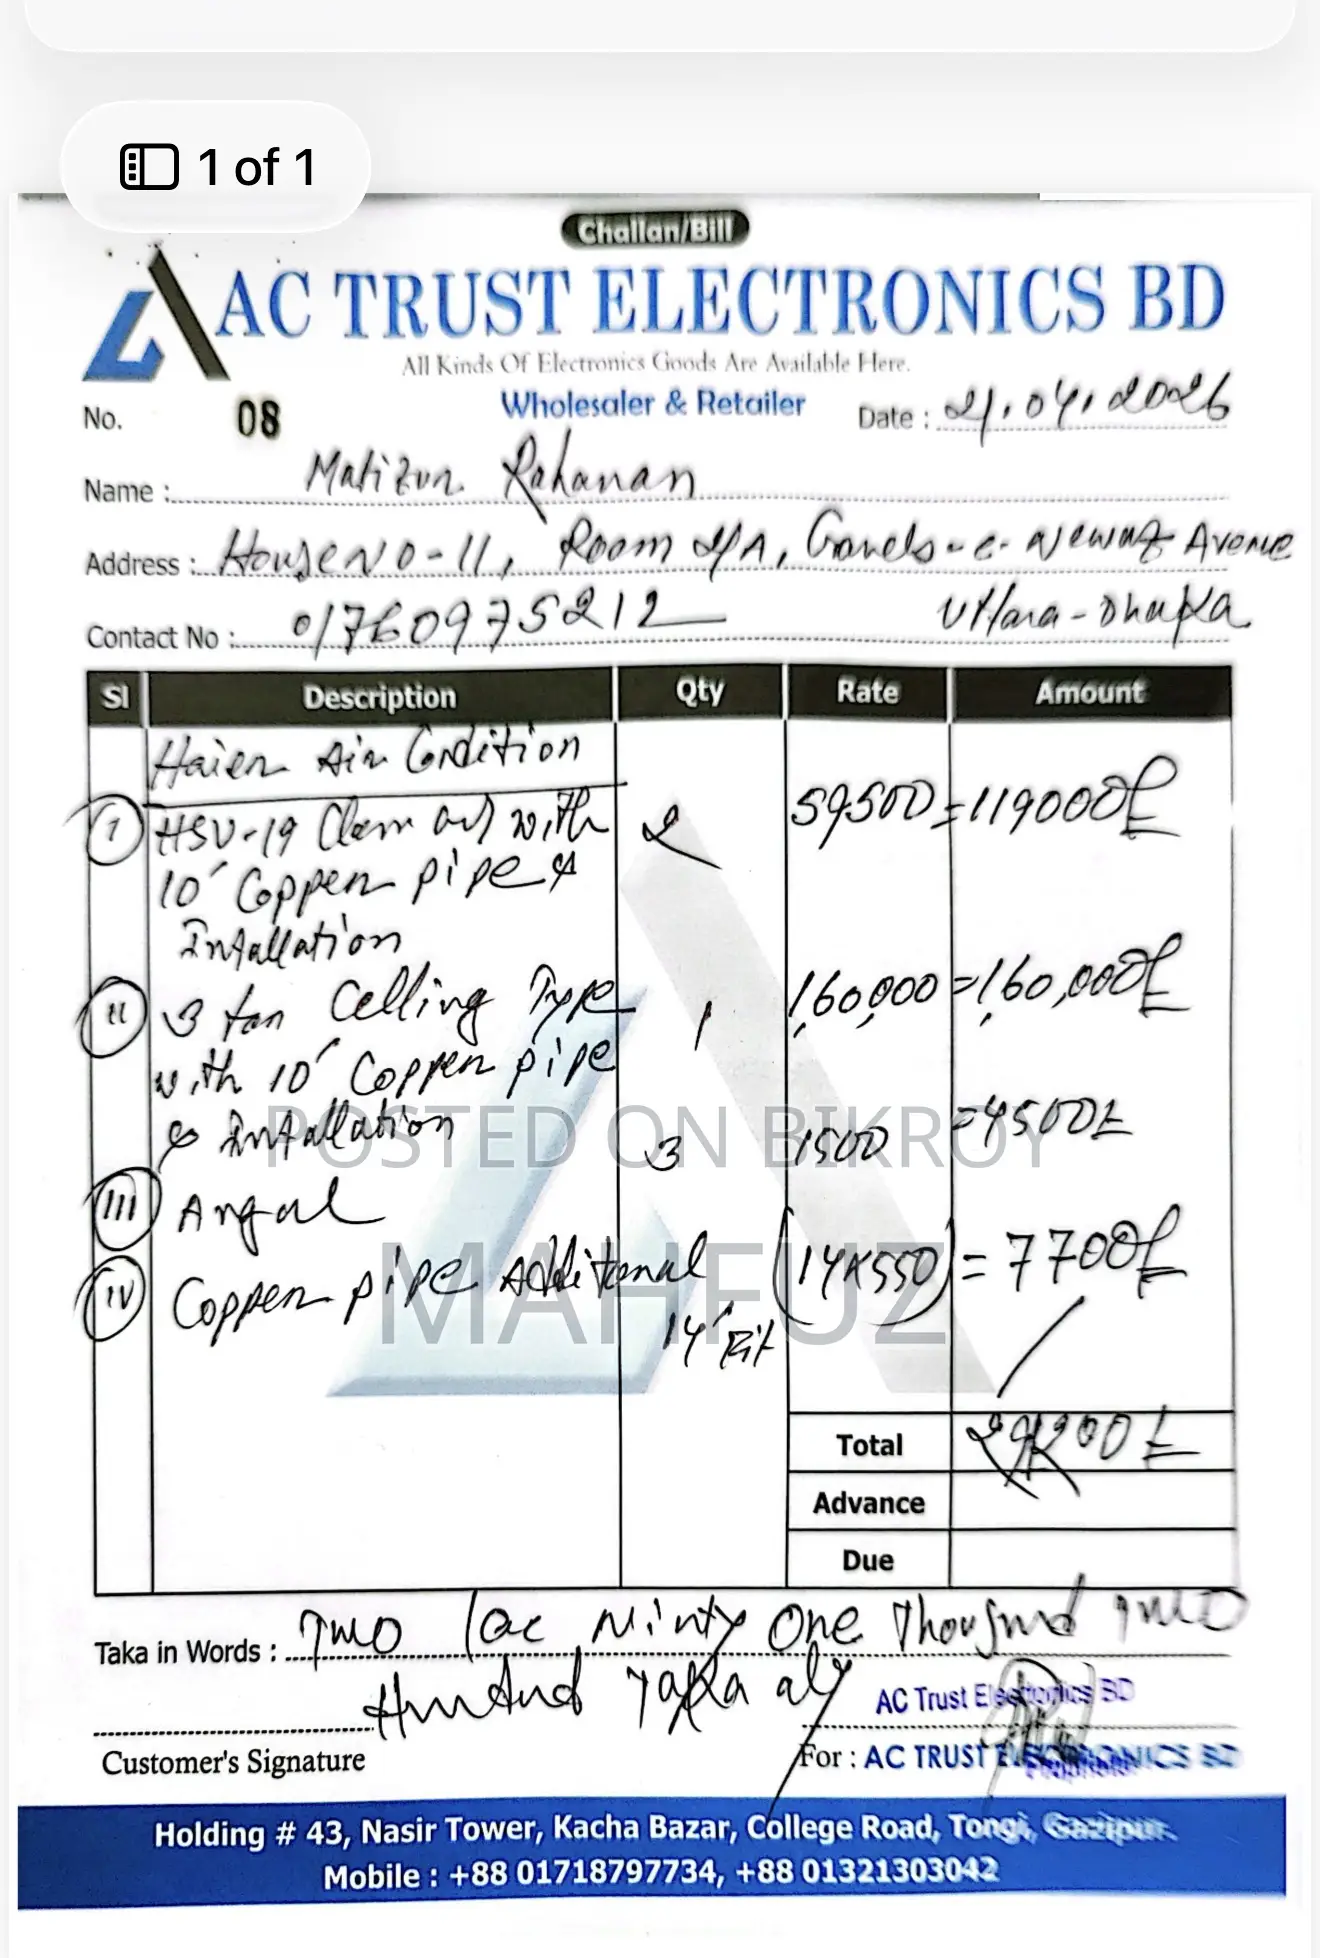 1 of 1
Challan/Bill
AC TRUST ELECTRONICS BD
All Kinds Of Electronics Goods Are Available Here.
Wholesaler & Retailer
No. 08
Date : 21.04.2026
Name :
Address : House No-11, Room Avenue
Uttara-Dhaka
Contact No : 01760975212
Sl Description Qty Rate Amount
Haier Air Condition
I HSU-19 with 2 59500 = 119000
10' Copper pipe &
Intallation
II 3 ton Celling Type 1 1,60,000 = 1,60,000
with 10' Copper pipe
& Intallation
III Angal 3 1500 = 4500
IV Copper pipe Additonal 14' (14x550) = 7700
Total 291200
Advance
Due
Taka in Words : Two lac Ninty One Thousand Two
Hundred Taka
POSTED ON BIKROY
MAHFUZ
AC Trust Electronics BD
Customer's Signature
For : AC TRUST ELECTRONICS BD
Holding # 43, Nasir Tower, Kacha Bazar, College Road, Tongi, Gazipur.
Mobile : +88 01718797734, +88 01321303042